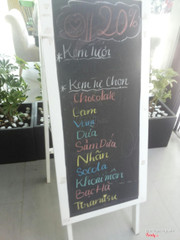 20%
* Kem tươi
* Kem tự Chọn
Chocolate
Cam
Vani
Dừa
Sầm Dứa
Nhãn
Socola
Khoai môn
Bạc Hà
Tiramisu